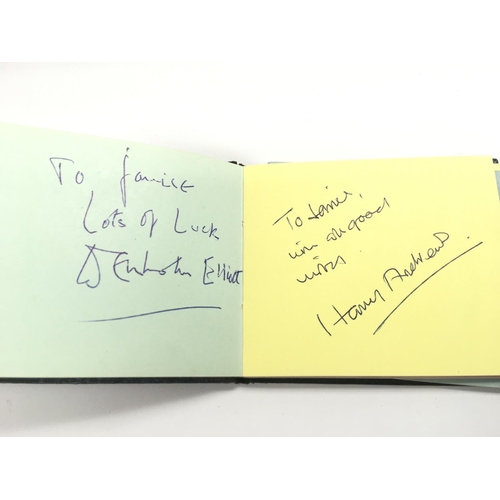 To Janice
Lots of Luck
Denholm Elliott
To Janice,
with all good
wishes.
Harry Andrews.